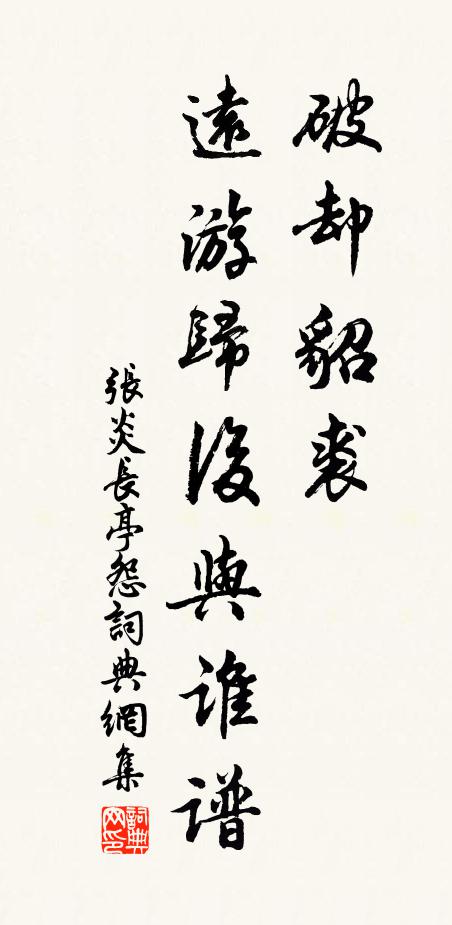 破却貂裘
遠游歸後與誰譜
張炎長亭怨詞典網集
詞典網印